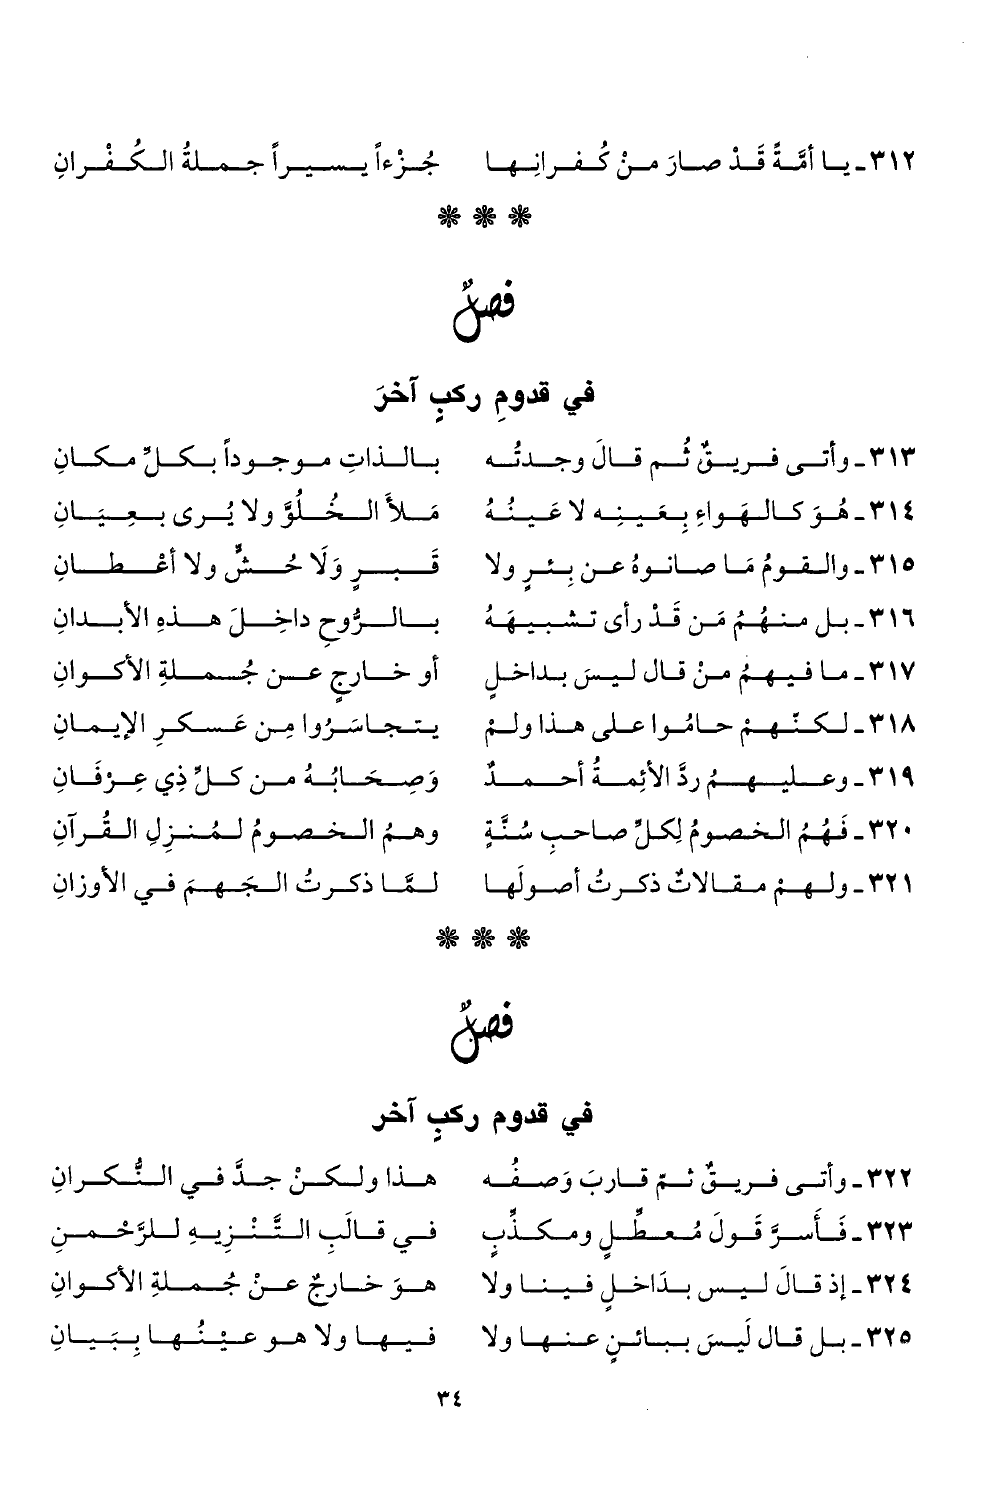 ٣١٢ - يا أمَّةً قَدْ صارَ منْ كُفرانِها جُزْءاً يسيراً جملةُ الكُفْرانِ
❊ ❊ ❊
فصلٌ
في قدومِ ركبٍ آخرَ
٣١٣ - وأتى فريقٌ ثُم قالَ وجدتُه بالذاتِ موجوداً بكلِّ مكانِ
٣١٤ - هُوَ كالهَواءِ بِعَينِه لا عَينُهُ مَلأَ الخُلُوَّ ولا يُرى بعِيَانِ
٣١٥ - والقومُ مَا صانوهُ عن بِئرٍ ولا قَبرٍ وَلَا حُشٍّ ولا أعْطانِ
٣١٦ - بل منهُمُ مَن قَدْ رأى تشبيهَهُ بالرُّوحِ داخِلَ هذهِ الأبدانِ
٣١٧ - ما فيهمُ منْ قال ليسَ بداخلٍ أو خارجٍ عن جُملةِ الأكوانِ
٣١٨ - لكنّهمْ حامُوا على هذا ولمْ يتجاسَرُوا مِن عَسكرِ الإيمانِ
٣١٩ - وعليهمُ ردَّ الأئمةُ أحمدٌ وَصِحَابُهُ من كلِّ ذِي عِرْفَانِ
٣٢٠ - فَهُمُ الخصومُ لِكلِّ صاحبِ سُنَّةٍ وهمُ الخصومُ لمُنزِلِ القُرآنِ
٣٢١ - ولهمْ مقالاتٌ ذكرتُ أصولَها لمَّا ذكرتُ الجَهمَ في الأوزانِ
❊ ❊ ❊
فصلٌ
في قدومِ ركبٍ آخر
٣٢٢ - وأتى فريقٌ ثمّ قاربَ وَصفُه هذا ولكنْ جدَّ في النُّكرانِ
٣٢٣ - فَأَسرَّ قَولَ مُعطِّلٍ ومكذِّبٍ في قالَبِ التَّنْزِيهِ للرَّحْمنِ
٣٢٤ - إذ قالَ ليس بدَاخلٍ فينا ولا هوَ خارجٌ عنْ جُملةِ الأكوانِ
٣٢٥ - بل قال لَيسَ ببائنٍ عنها ولا فيها ولا هو عيْنُها بِبَيانِ
٣٤